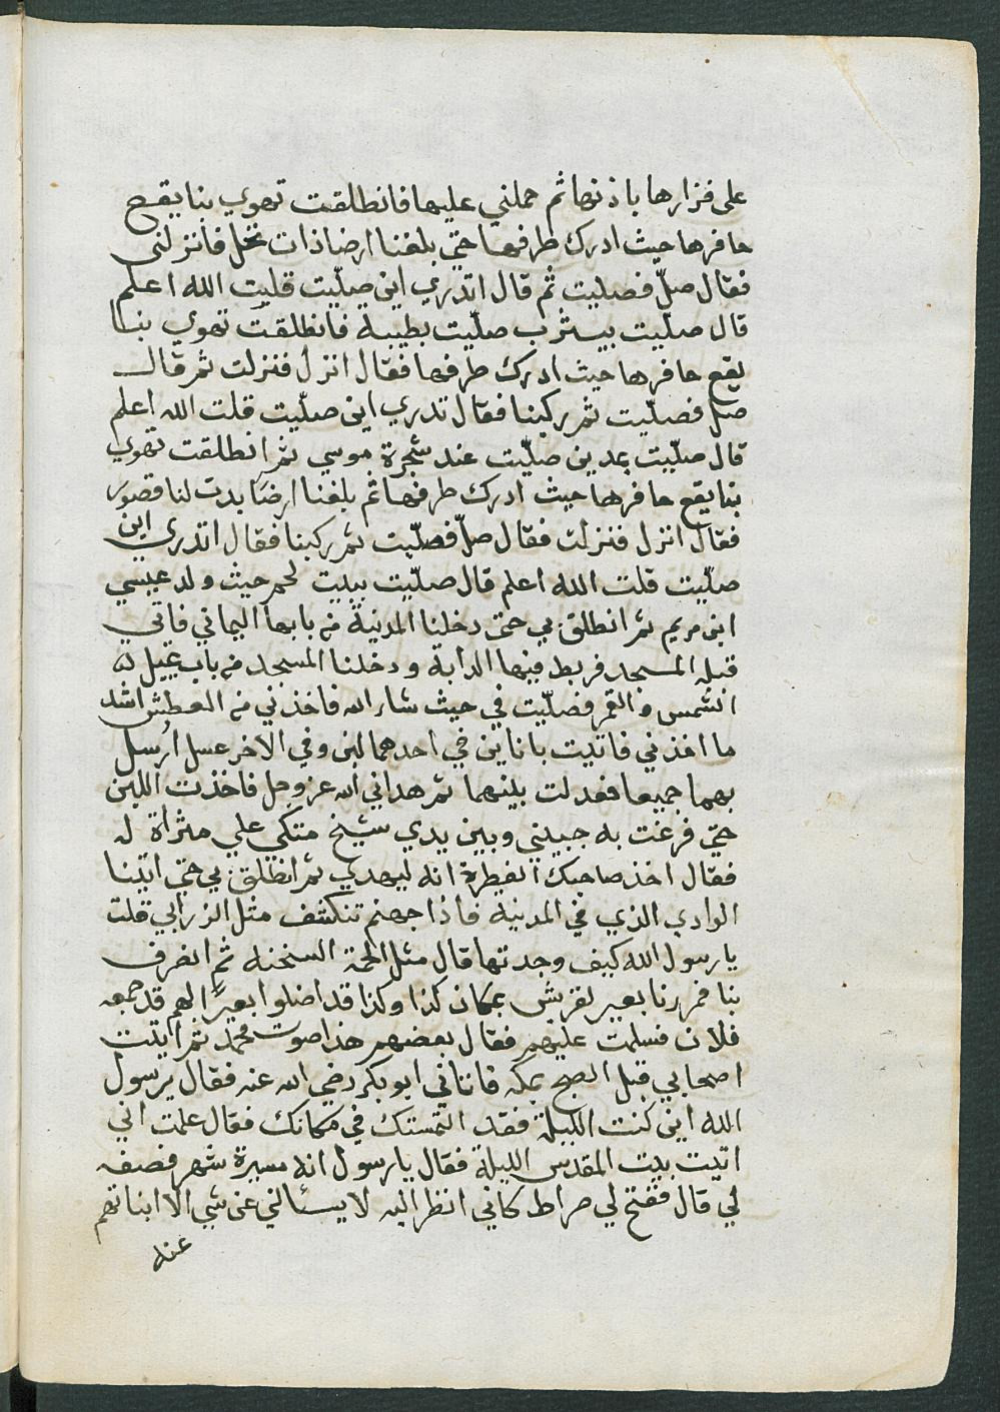 على فزارها باذنها ثم حملني عليها فانطلقت تهوي بنا يقع
حافرها حيث ادرك طرفها حتي بلغنا ارضا ذات نخل فانزلني
فقال صلّ فصليت ثم قال اتدري اين صلّيت قليت الله اعلم
قال صليت بيثرب صلّيت بطيبه فانطلقت تهوي بنا
يقع حافرها حيث ادرك طرفها فقال انزل فنزلت ثم قال
صل فصلّيت ثم ركبنا فقال تدري اين صلّيت قلت الله اعلم
قال صلّيت بمدين صلّيت عند شجرة موسي ثم انطلقت تهوي
بنا يقع حافرها حيث ادرك طرفها ثم بلغنا ارضًا بدت لنا قصور
فقال انزل فنزلت فقال صلّ فصلّيت ثم ركبنا فقال اتدري اين
صلّيت قلت الله اعلم قال صلّيت ببيت لحم حيث ولد عيسي
ابن مريم ثم انطلق بي حتى دخلنا المدينة من بابها اليماني فاتي
قبله المسجد فربط فيها الدابة ودخلنا المسجد من باب تميل له
الشمس والقمر فصلّيت في حيث شاء الله فاخذني من العطش اشد
ما اخذني فاتيت باناين في احدهما لبن وفي الاخر عسل ارسل
بهما جميعا فعدلت بينهما ثم هداني الله عز وجل فاخذت اللبن
حتي فرغت به جبيني وبين يدي شيخ متكي علي مثراة له
فقال اخذ صاحبك الفطرة انه ليهدي ثم انطلق بي حتي اتينا
الوادي الذي في المدينه فاذا جهنم تنكشف مثل الزرابي قلت
يا رسول الله كيف وجدتها قال مثل الحمة السخنه ثم انصرف
بنا فمررنا بعير لقريش بمكان كذا وكذا قد اضلوا بعيرًا لهم قد جمعه
فلان فسلمت عليهم فقال بعضهم هذا صوت محمد ثم اتيت
اصحابي قبل الصبح بمكه فاتاني ابو بكر رضي الله عنه فقال يرسول
الله اين كنت الليلة فقد التمستك في مكانك فقال علمت اني
اتيت بيت المقدس الليلة فقال يا رسول انه مسيرة شهر فصفه
لي قال ففتح لي صراط كاني انظر اليه لا يسئالني عن شي الا انباتهم
عنه